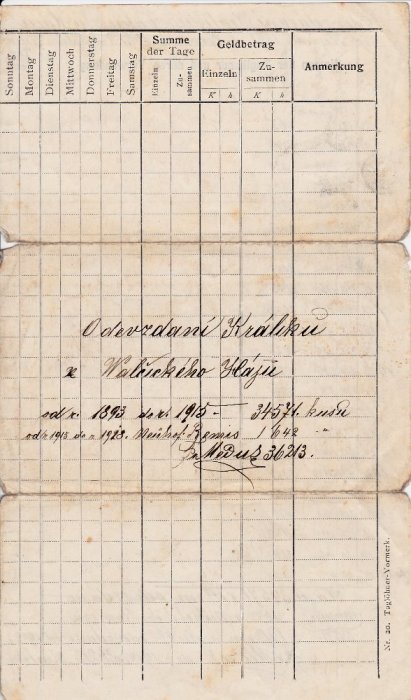 Sonntag
Montag
Dienstag
Mittwoch
Donnerstag
Freitag
Samstag
Summe der Tage
Einzeln
Zusammen
Geldbetrag
Einzeln
Zusammen
K h K h
Anmerkung
Odevzdaní Králiků
z Walčického Hájů
od r. 1893 do r. 1915 — 34571 kusů
od r. 1913 do r. 1923. Remis 1642 "
36213.
Nr. 20. Taglöhner-Vormerk.